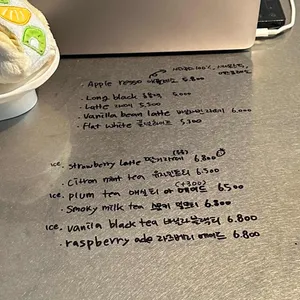 · Apple rosso 애플로소 5.800
· Long black 롱블랙 5.000
· Latte 라떼 5.500
· Vanilla bean latte 바닐라빈라떼 6.000
· Flat white 플랫화이트 5.300
ice. strawberry latte 딸기라떼 6.800
· Citron mint tea 6.500
ice. plum tea 매실티 or 에이드 6500
(+300)
· Smoky milk tea 스모키 밀크티 6.800
ice. vanila black tea 바닐라블랙티 6.800
· raspberry ade 라즈베리 에이드 6.800